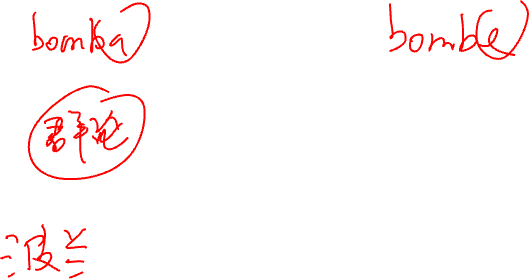 bomba bombe
群论
波兰